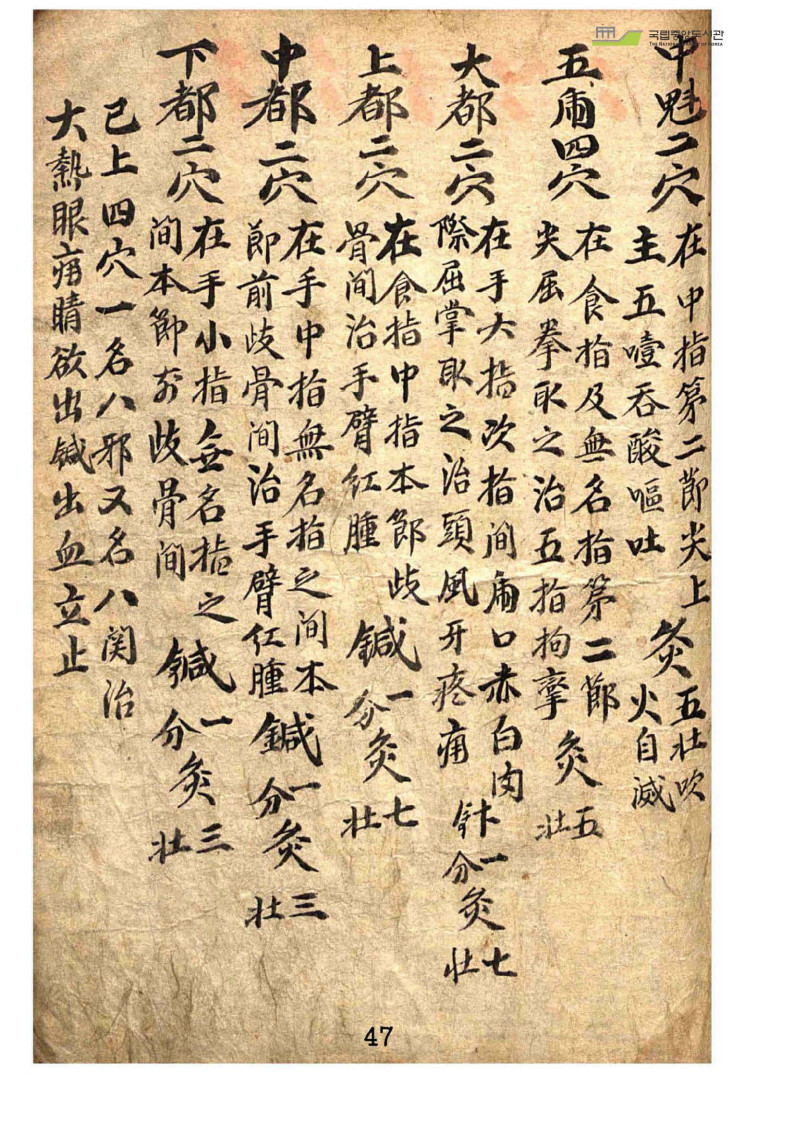 국립중앙도서관
THE NATIONAL LIBRARY OF KOREA
中魁二穴
在中指第二節尖上
主五噎吞酸嘔吐
灸
五壯吹
火自滅
五甬四穴
在食指及無名指第二節
尖屈拳取之治五指拘攣
灸
五
壯
大都二穴
在手大指次指间甬口赤白肉
際屈掌取之治頭風牙疼痛
针
一
分
灸
七
壯
上都二穴
在食指中指本節歧
骨间治手臂红腫
鍼
一
分
灸
七
壯
中都二穴
在手中指無名指之间本
節前歧骨间治手臂红腫
鍼
一
分
灸
三
壯
下都二穴
在手小指無名指之
间本節前歧骨间
鍼
一
分
灸
三
壯
已上四穴一名八邪又名八関治
大熱眼痛睛欲出鍼出血立止
47